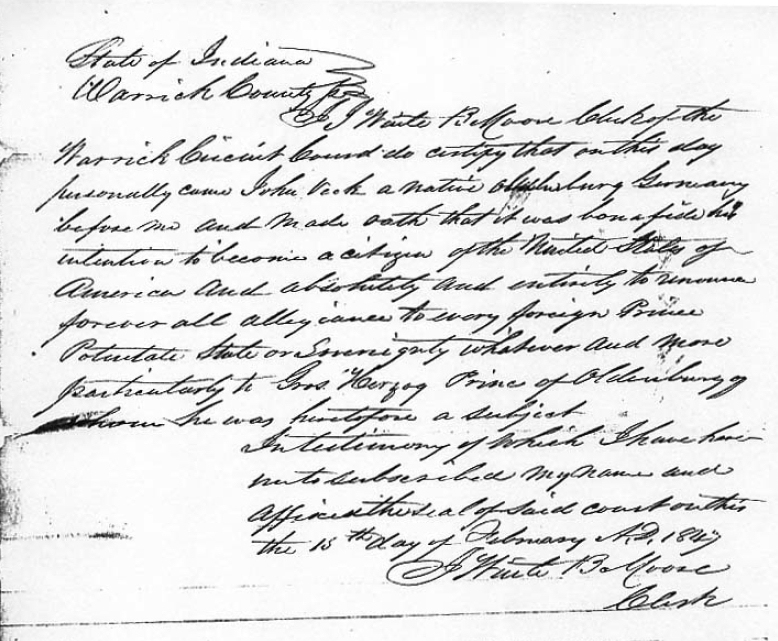 State of Indiana
Warrick County ss
I Waite B Moore Clerk of the
Warrick Circuit Court do certify that on this day
personally came John Veck a native Oldenburg Germany
before me and made oath that it was bonafide his
intention to become a citizen of the United States of
America and absolutely and entirely to renounce
forever all allegiance to every foreign Prince
Potentate State or Sovereignty whatever and more
particularly to Gros Herzog Prince of Oldenburg of
whom he was heretofore a subject
In testimony of which I have here
unto subscribed my name and
affixed the seal of said court on this
the 15th day of February A.D. 1847
J Waite B Moore
Clerk